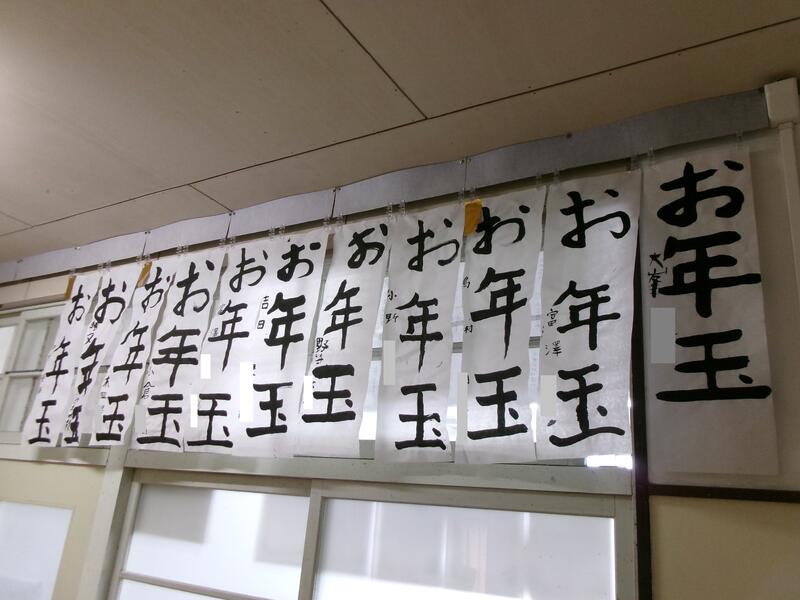 お年玉
大峯
お年玉
富澤
お年玉
島村
お年玉
小野
お年玉
お年玉
吉田
お年玉
お年玉
お年玉
お年玉
お年玉
お年玉